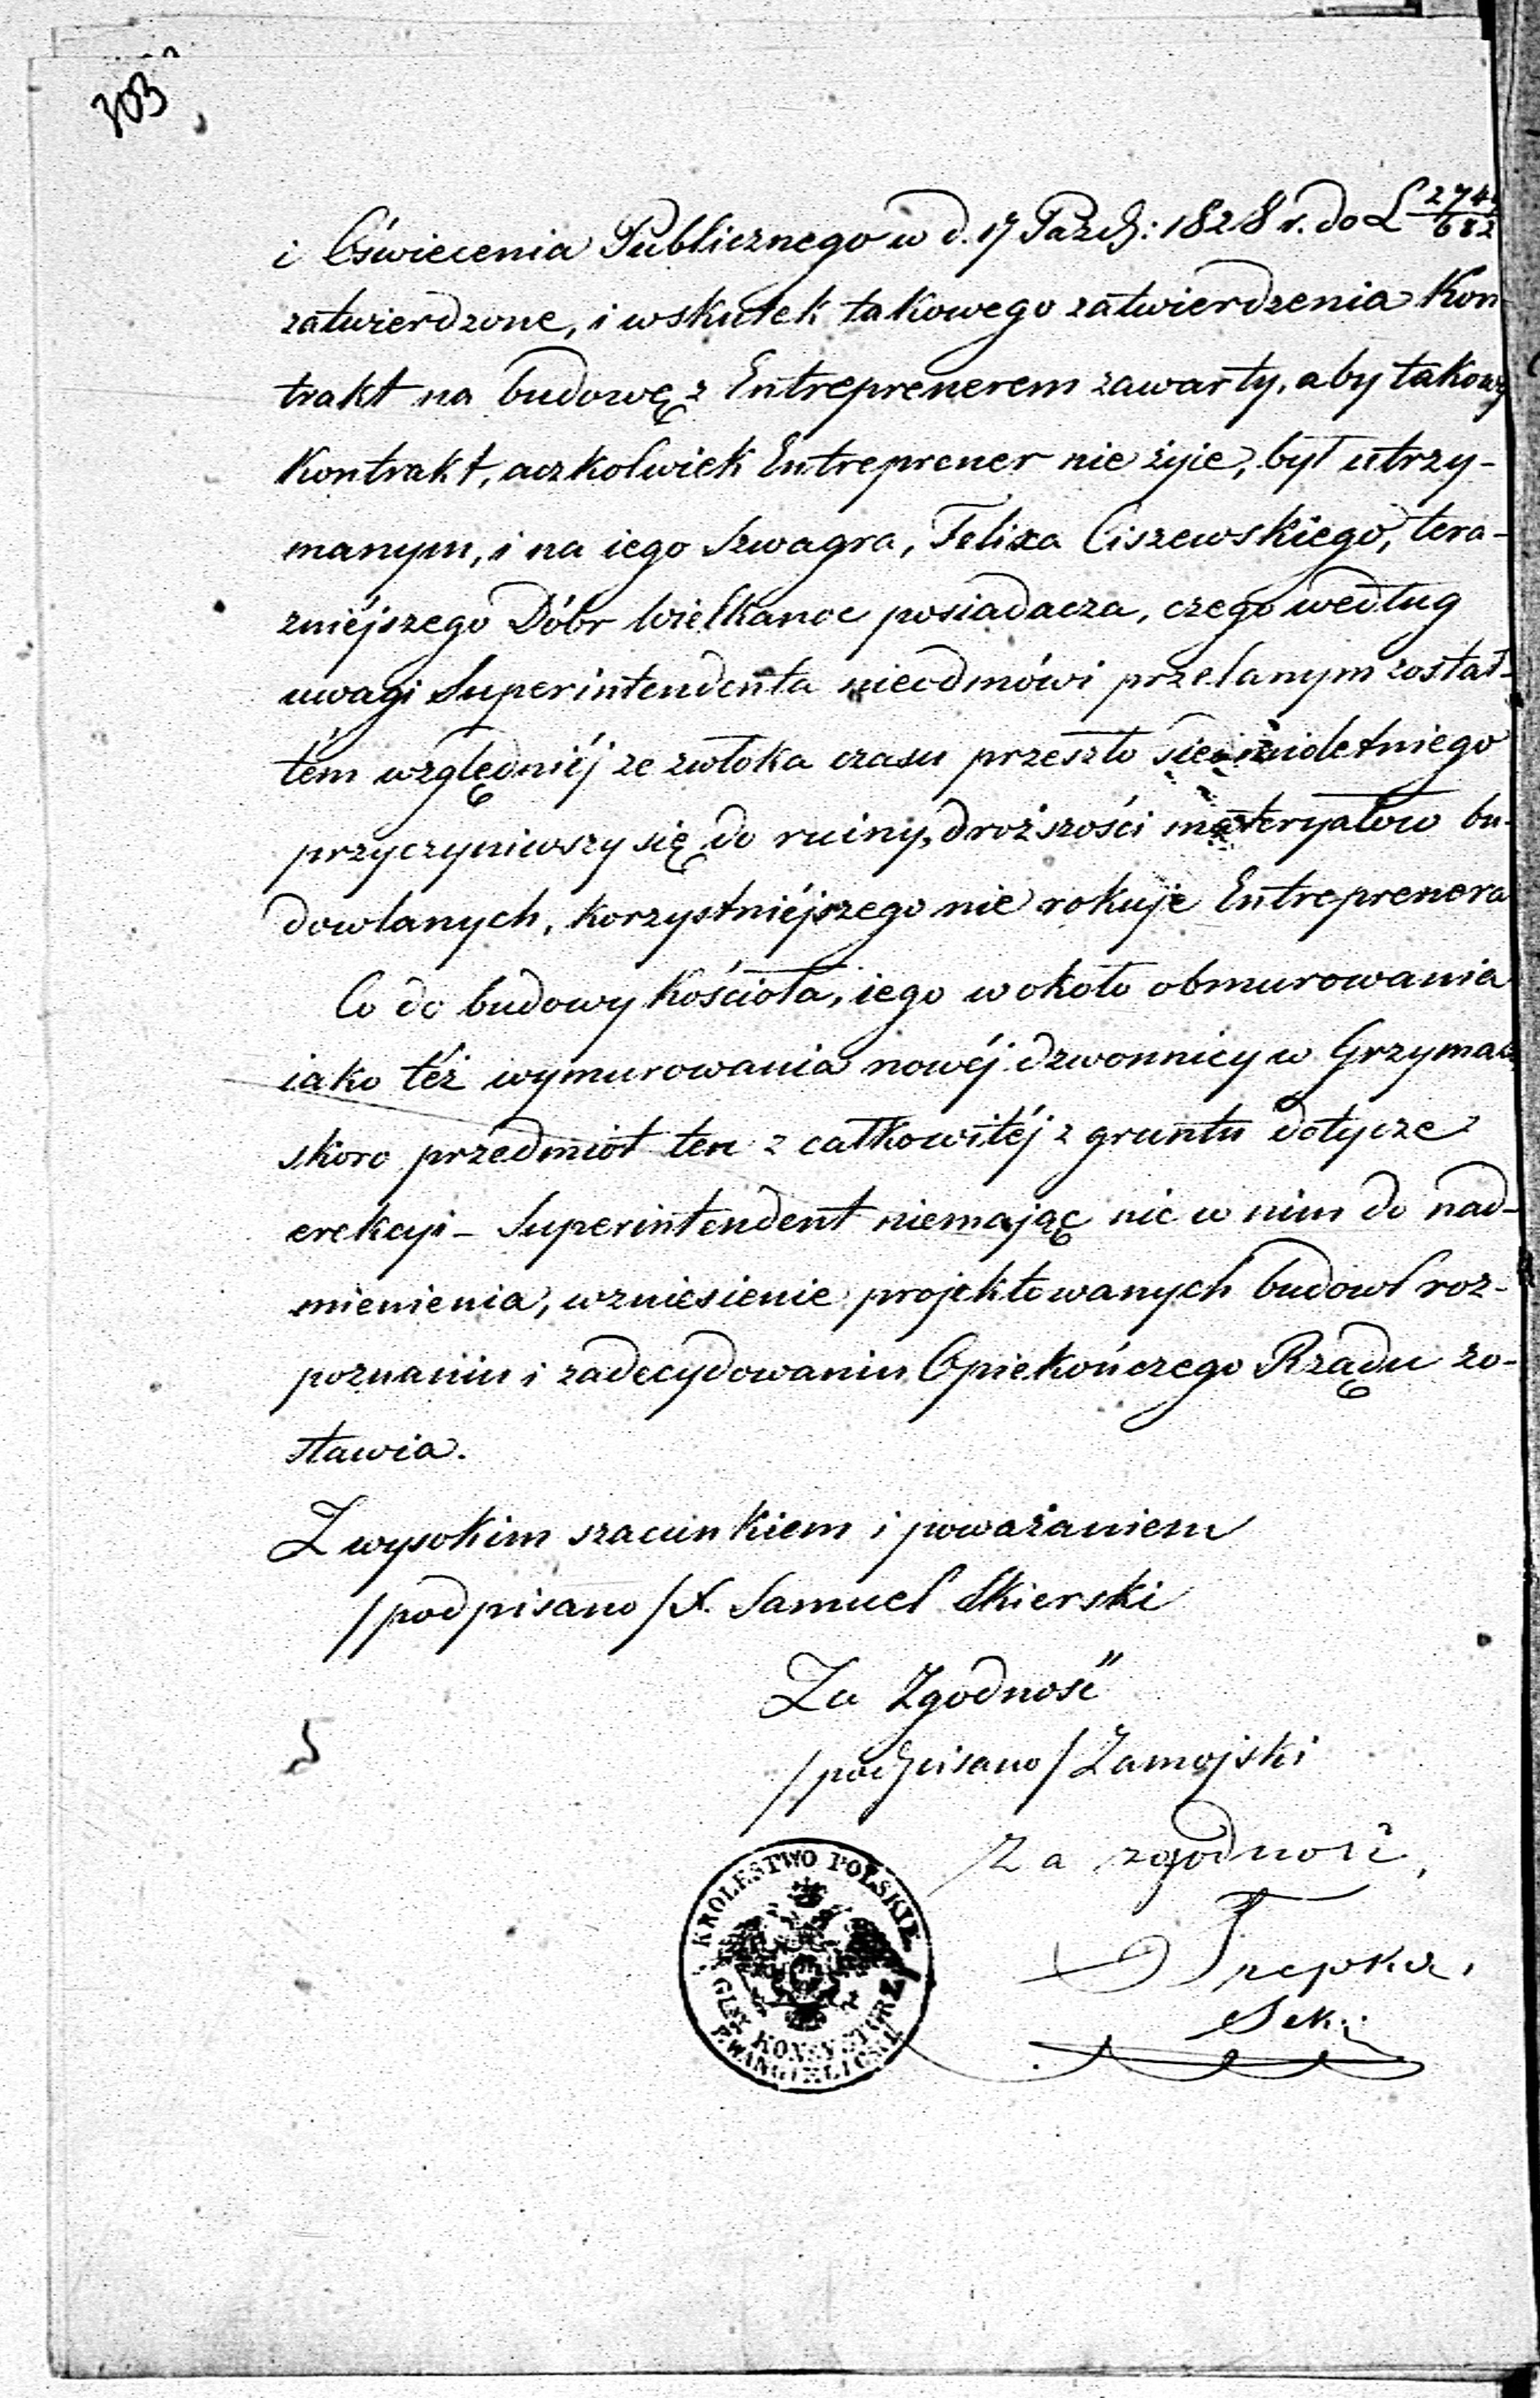 303
i Oświecenia Publicznego w d. 17 Paźdz: 1828 r. do L 274
682
zatwierdzone, i wskutek takowego zatwierdzenia Kon
trakt na budowę z Entreprenerem zawarty, aby takowy
Kontrakt, aczkolwiek Entreprener nie żyie, był utrzy-
manym, i na iego Szwagra, Felixa Ciszewskiego, tera-
zniéjszego Dóbr Wielkanoc posiadacza, czego według
uwagi Superintendenta nieodmówi przelanym został-
tém względniéj ze zwłoka czasu przeszło siedmioletniego
przyczyniwszy się do ruiny, droższości materyałów bu-
dowlanych, korzystniéjszego nie rokuje Entreprenera
Co do budowy Kościoła, iego w około obmurowania
iako též wymurowania nowéj dzwonnicy w Grzymał
skoro przedmiot ten z całkowitéj z gruntu dotycze
erekcyi - Superintendent niemając nic w nim do nad-
mienienia, wzniesienie projektowanych budowl roz-
poznaniu i zadecydowaniu Opiekończego Rządu zo-
stawia.
Z wysokim szacunkiem i poważaniem
/podpisano/ X. Samuel Skierski
Za Zgodność
/podpisano/ Zamojski
Za zgodność,
Trepka,
Sek:
KROLESTWO POLSKIE
GLNY KONSYSTORZ
EWANGIELICKI